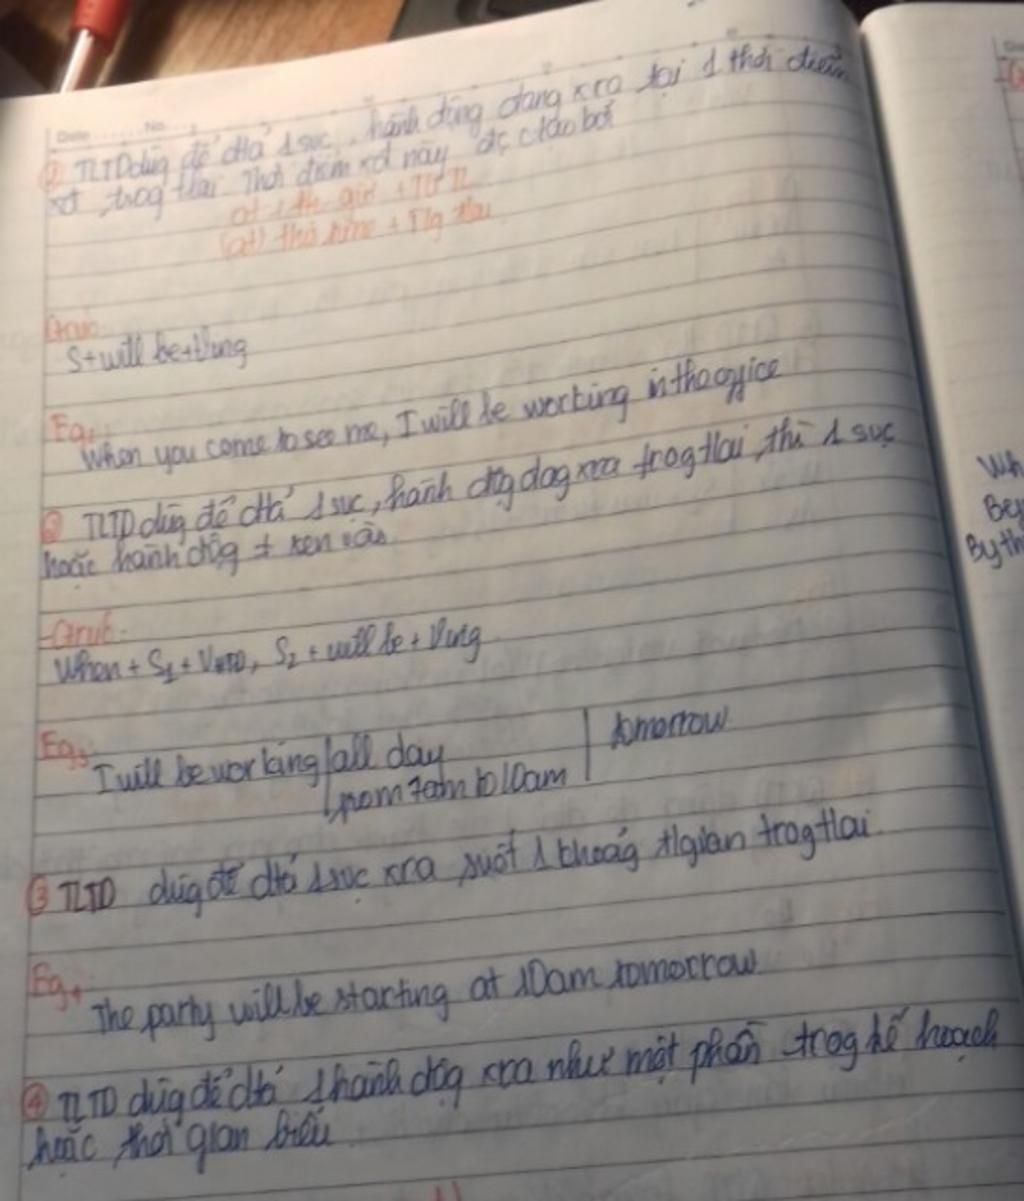 Date ...... No ....
① TLTD dùg để dtả 1 sực, hành động đang xra tại 1 thời điểm
xđ trog tlai. Thời điểm xđ này đc ctạo bởi
at + th gian + TgTL
(at) this time + Tlg tlai
Struc
S+will be+Ving
Eg1
When you come to see me, I will be working in the office
② TLTD dùg để dtả 1 sực, hành độg đag xra trog tlai, thì 1 sực
hoặc hành độg ≠ xen vào.
Struc
When + S1 + VHTD, S2 + will be + Ving
Eg3
I will be working all day tomorrow
from 7am to 10am
③ TLTD dùg để dtả 1 sực xra suốt 1 khoảg tlgian trog tlai
Eg4
The party will be starting at 10am tomorrow
④ TLTD dùg để dtả 1 hành độg xra như một phần trog kế hoạch
hoặc thời gian biểu
Wh
By th